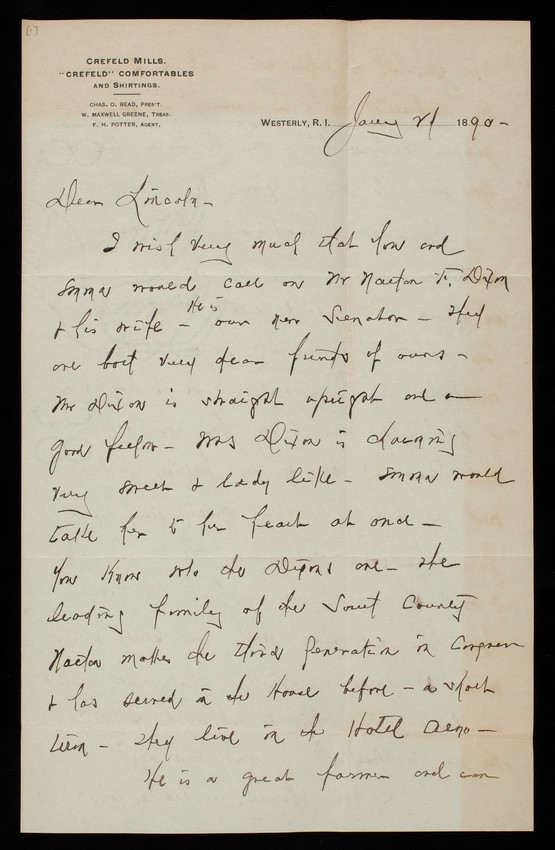 (1)
CREFELD MILLS.
"CREFELD" COMFORTABLES
AND SHIRTINGS.
CHAS. O. READ, PRES'T.
W. MAXWELL GREENE, TREAS.
F. H. POTTER, AGENT.
WESTERLY, R. I. Jany 21 1890-
Dear Lincoln-
I wish very much that you and
Emma would call on Mr Nathan F. Dixon
& his wife - He is our new Senator - they
are both very dear friends of ours -
Mr Dixon is straight upright and a
good fellow - Mrs Dixon is charming
very sweet & lady like - Emma would
take her to her heart at once -
You know who the Dixons are - the
leading family of the South County
Nathan makes the third generation in Congress
& has served in the House before - a short
term - They live in the Hotel Arno -
He is a great farmer and can